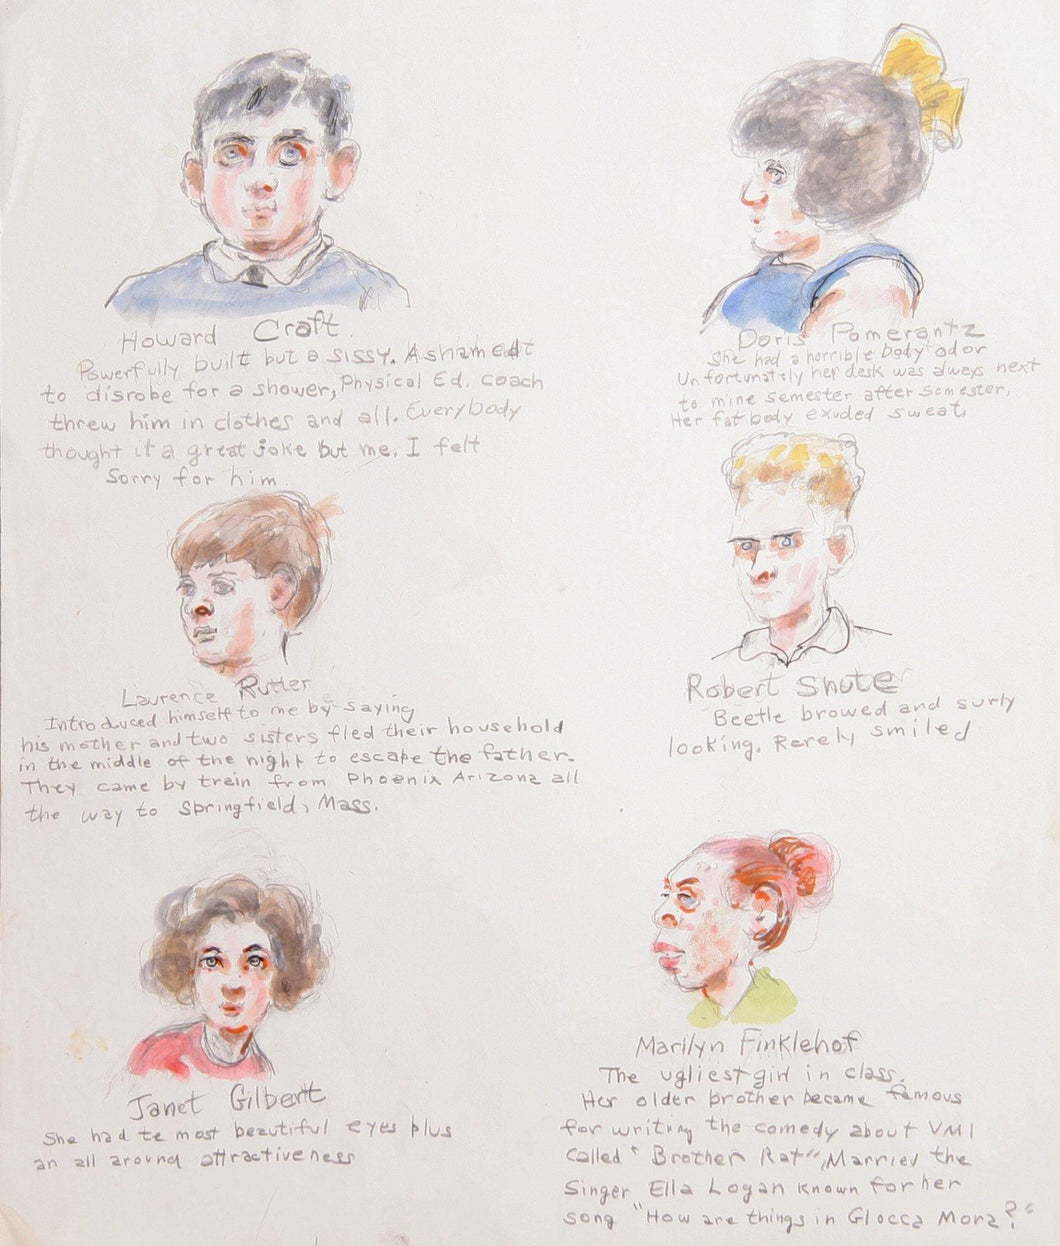 Howard Craft
Powerfully built but a sissy. Ashamed
to disrobe for a shower, Physical Ed. coach
threw him in clothes and all. Everybody
thought it a great joke but me. I felt
Sorry for him.
Doris Pomerantz
She had a horrible body odor
Unfortunately her desk was always next
to mine semester after semester.
Her fat body exuded sweat.
Laurence Rutler
Introduced himself to me by saying
his mother and two sisters fled their household
in the middle of the night to escape the father.
They came by train from Phoenix Arizona all
the way to Springfield, Mass.
Robert Shute
Beetle browed and surly
looking. Rarely smiled
Janet Gilbert
She had te most beautiful eyes plus
an all around attractiveness
Marilyn Finklehof
The ugliest girl in class.
Her older brother became famous
for writing the comedy about VMI
Called "Brother Rat" Married the
Singer Ella Logan known for her
song "How are things in Glocca Mora?"